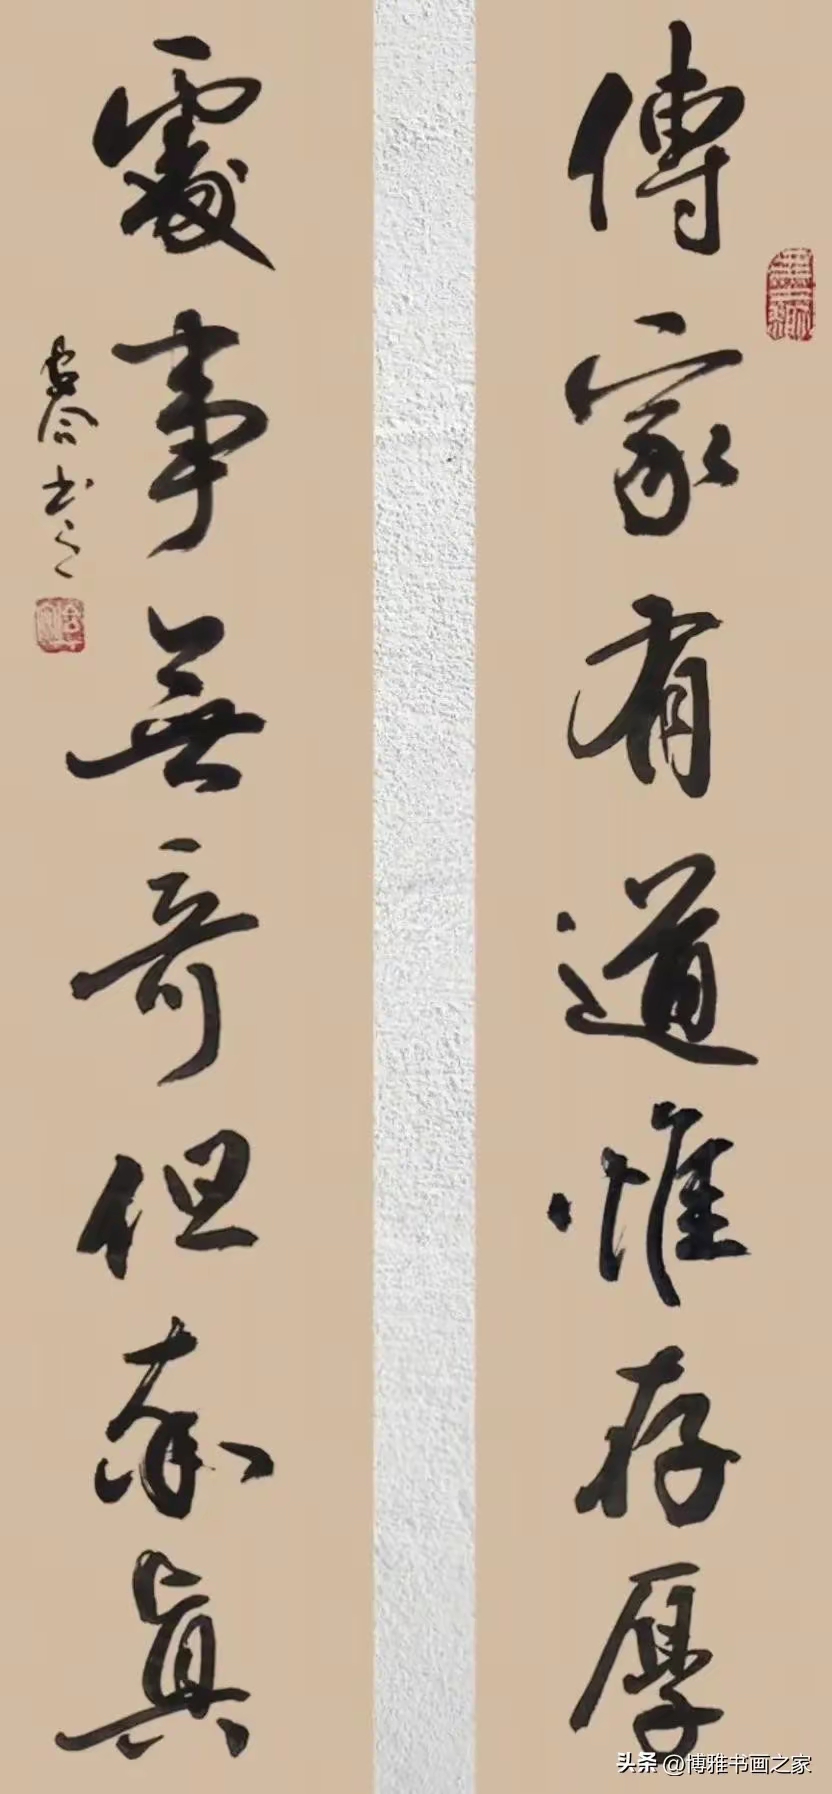 傳家有道惟存厚
處事無奇但率真
書之
头条 @博雅书画之家